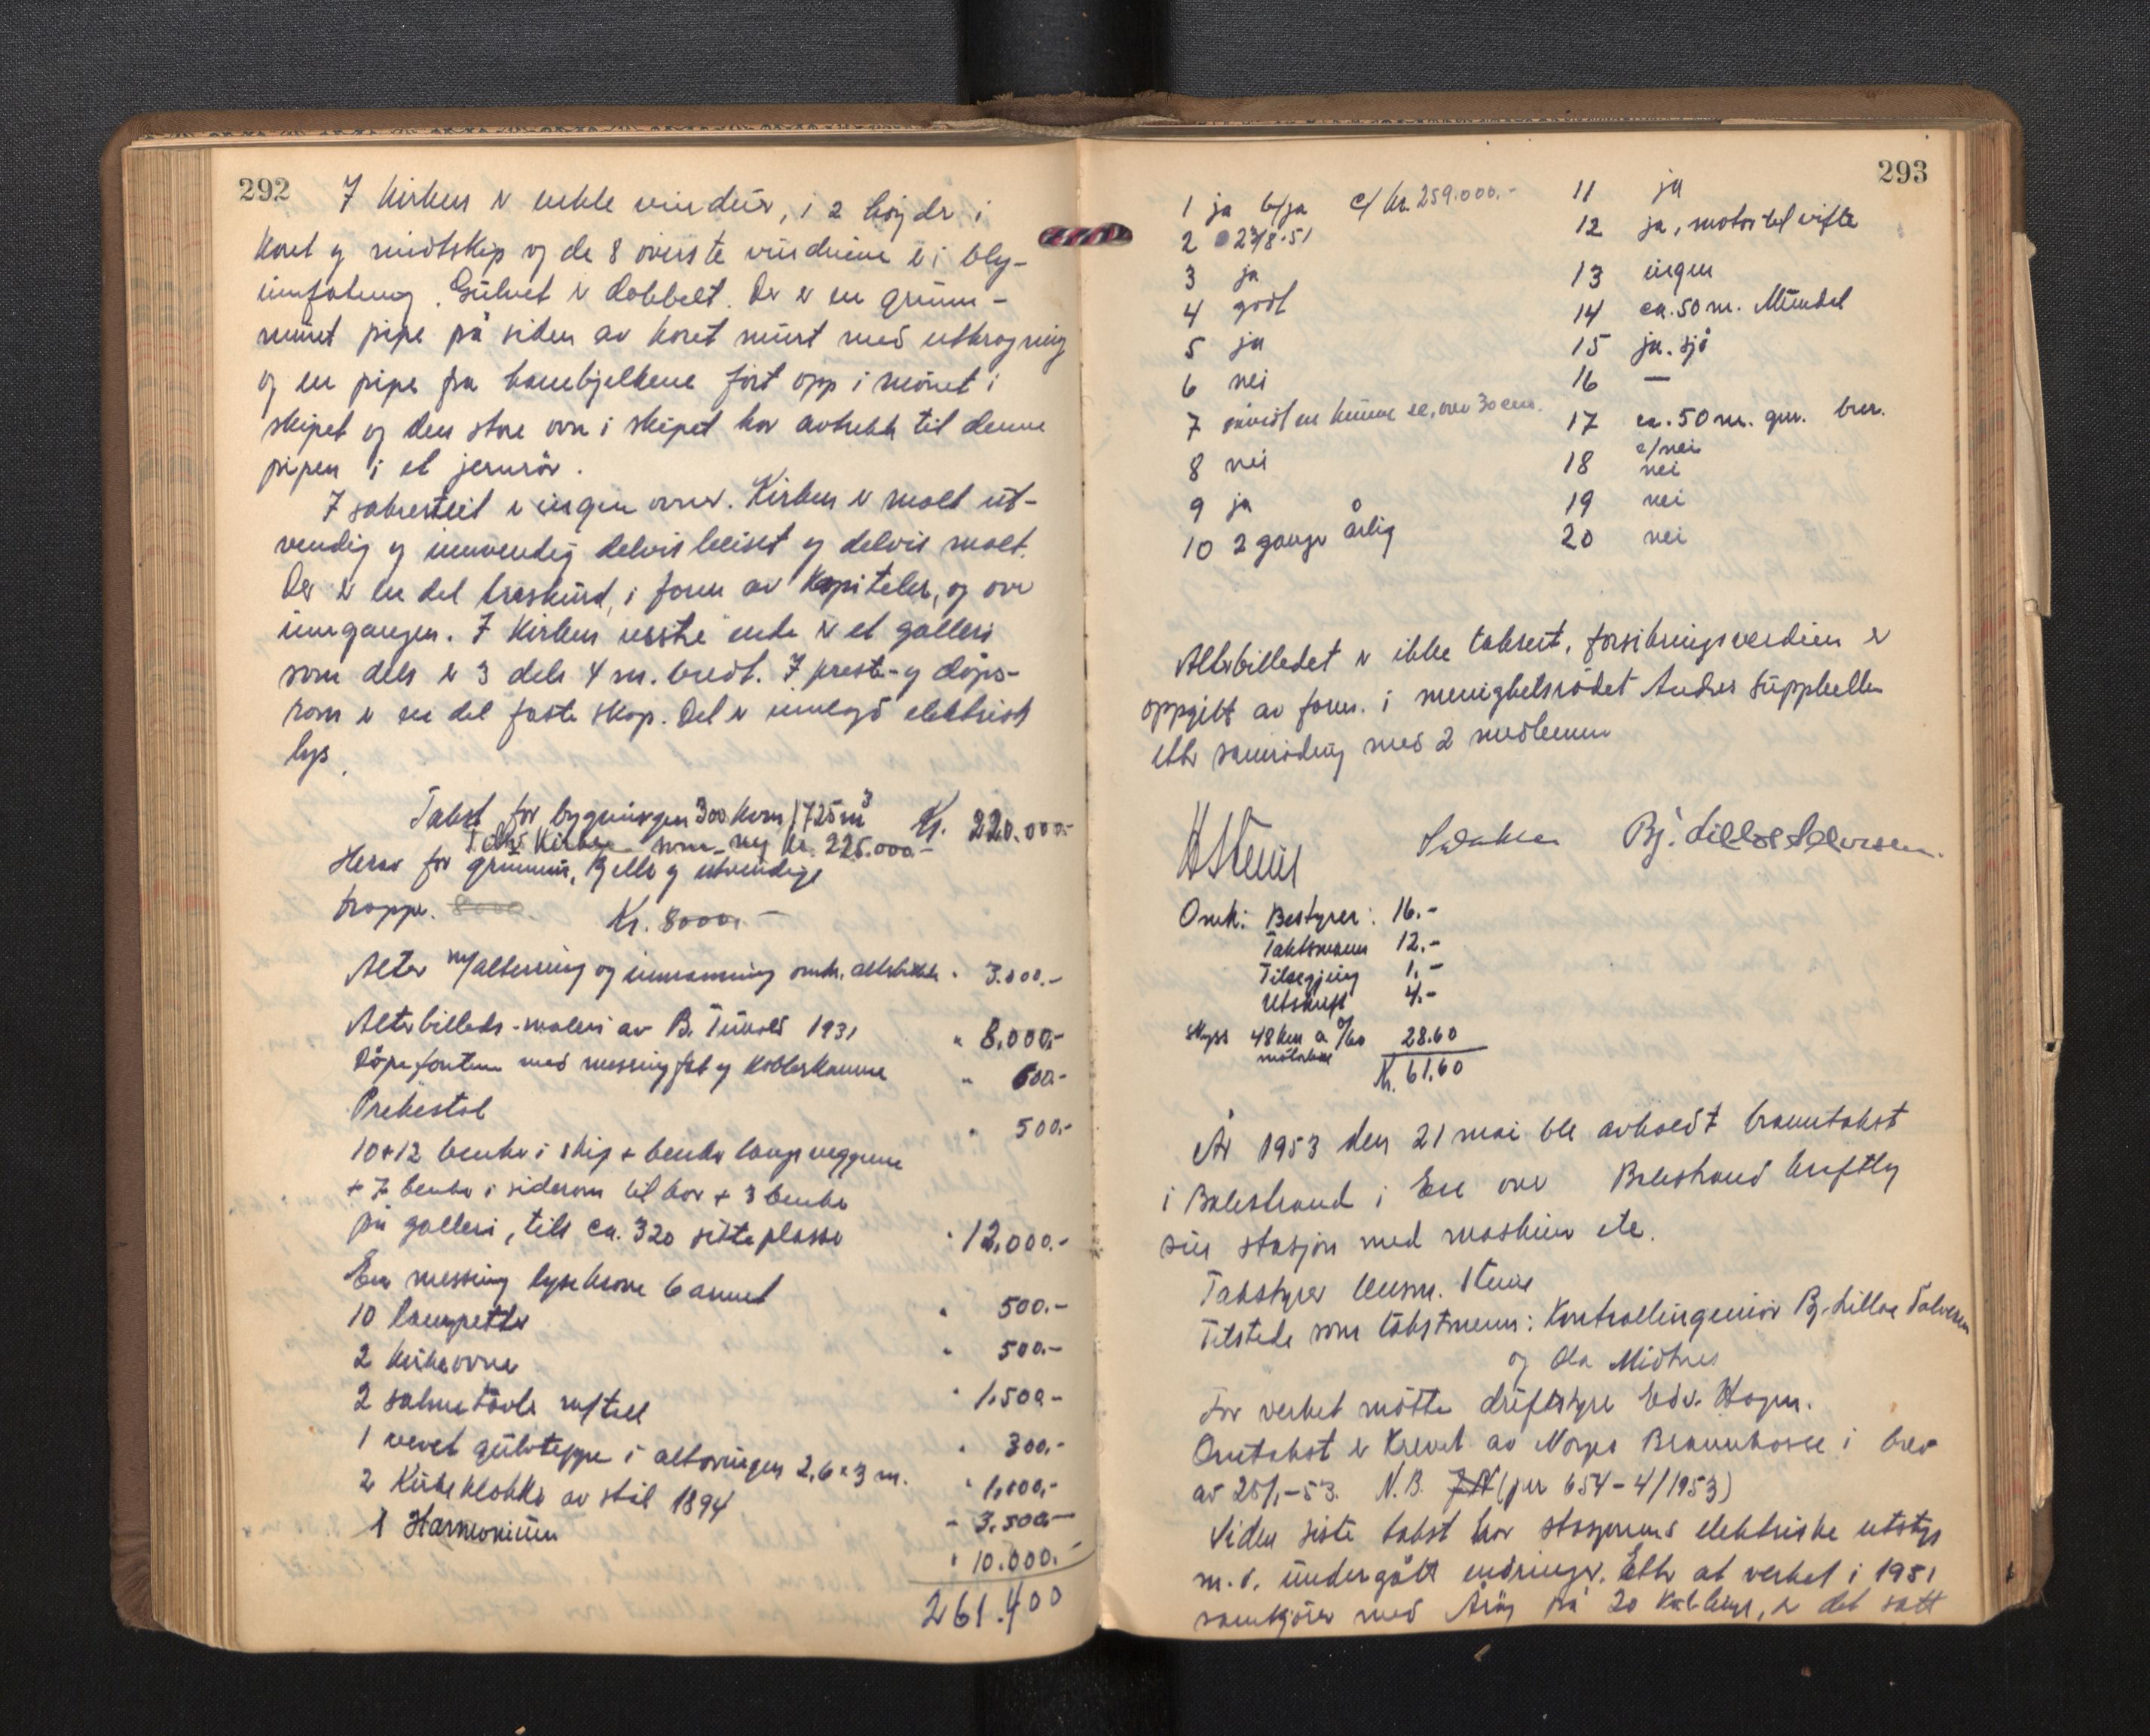 292
I kirken er enkle vinduer, i 2 høyder i
koret og midtskip og de 8 överste vinduene er i bly-
innfatning. Gulvet er dobbelt. Der er en grunn-
muret pipe på siden av koret murt med utkragning
og en pipe fra hanebjelkene fört opp i mönet i
skipet og den store ovn i skipet har avtrekk til denne
pipen i et jernrör.
I sakrestiet er ingen ovner. Kirken er malt ut-
vendig og innvendig delvis beiset og delvis malt.
Der er en del treskurd, i form av kapiteler, og over
inngangen. I kirkens vestre ende er et galleri
som dels er 3 dels 4 m. bredt. I preste- og dåps-
rom er en del faste skap. Det er innlagd elektrisk
lys.
Takst for bygningen 300 kvm 1725 m³ Kr. 220.000.-
Kirken som ny kr. 225.000.-
Herav for grunnmur, kjeller og utvendige
trapper. 8000. Kr. 8000.-
Alter m/altering og innramming omkr. alterbilde " 3.000.-
Alterbilleds-maleri av B. Tunold 1931 " 8.000.-
Döpefonten med messingfat og kobberkanne " 600.-
Prekestol " 500.-
10+12 benker i skip + benker langs veggene
+ 7 benker i siderom til kor + 3 benker
på galleri, tils ca. 320 sitteplasser " 12,000.-
En messing lysekrone 6 armet " 500.-
10 lampetter " 500.-
2 kirkeovner " 1.500-
2 salmetavle m/tall " 300.-
1 vevet gulvteppe i alterringen 2,6 x 3 m. " 1,000.-
2 Kirkeklokker av stål 1894 " 3.500.-
1 Harmonium " 10.000.-
261.400
293
1 ja b/ja c/ kr. 259.000.-
2 23/8-51
3 ja
4 godt
5 ja
6 nei
7 såvidt en kunne se, over 30 cm.
8 nei
9 ja
10 2 ganger årlig
11 ja
12 ja, motor til vifte
13 ingen
14 ca. 50 m. Mundal
15 ja. sjö
16 —
17 ca. 50 m.
c/nei
18 nei
19 nei
20 nei
Alterbilledet er ikke taksert, forsikringsverdien er
oppgitt av form. i menighetsrådet Anders Suppehellen
etter samråding med 2 medlemmer
Bj. Lilloe Salvesen.
Omk: Bestyrer: 16.-
Takstmann 12.-
Tilsegjing 1.-
Utskrift 4.-
Skyss 48 km a 0/60 28.60
Kr. 61,60
År 1953 den 21 mai ble avholdt branntakst
i Balestrand i Ese over Balestrand kraftlag
sin stasjon med maskiner etc.
Takstyrer lensm. Steine
Tilstede som takstmenn: Kontrollingeniör Bj. Lilloe Salvesen
og Ola Midtnes
For verket mötte driftstyrer Edv. Hagen.
Omtakst er krevet av Norges Brannkasse i brev
av 25/1-53. N.B. (jnr 654-4/1953)
Siden siste takst har stasjonens elektriske utstyr
m.v. undergått endringer. Etter at verket i 1951
samkjörer med Aröy på 20 , er det satt